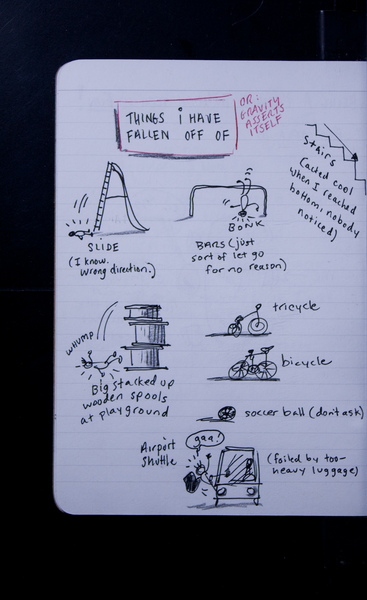 THINGS i HAVE
FALLEN OFF OF
OR:
GRAVITY
ASSERTS
ITSELF
Stairs
(acted cool
when I reached
bottom; nobody
noticed)
SLIDE
(I know.
Wrong direction.)
BONK
BARS (just
sort of let go
for no reason)
WHUMP
Big stacked up
wooden spools
at playground
tricycle
bicycle
soccer ball (don't ask)
Airport
Shuttle
gaa!
(foiled by too-
heavy luggage)